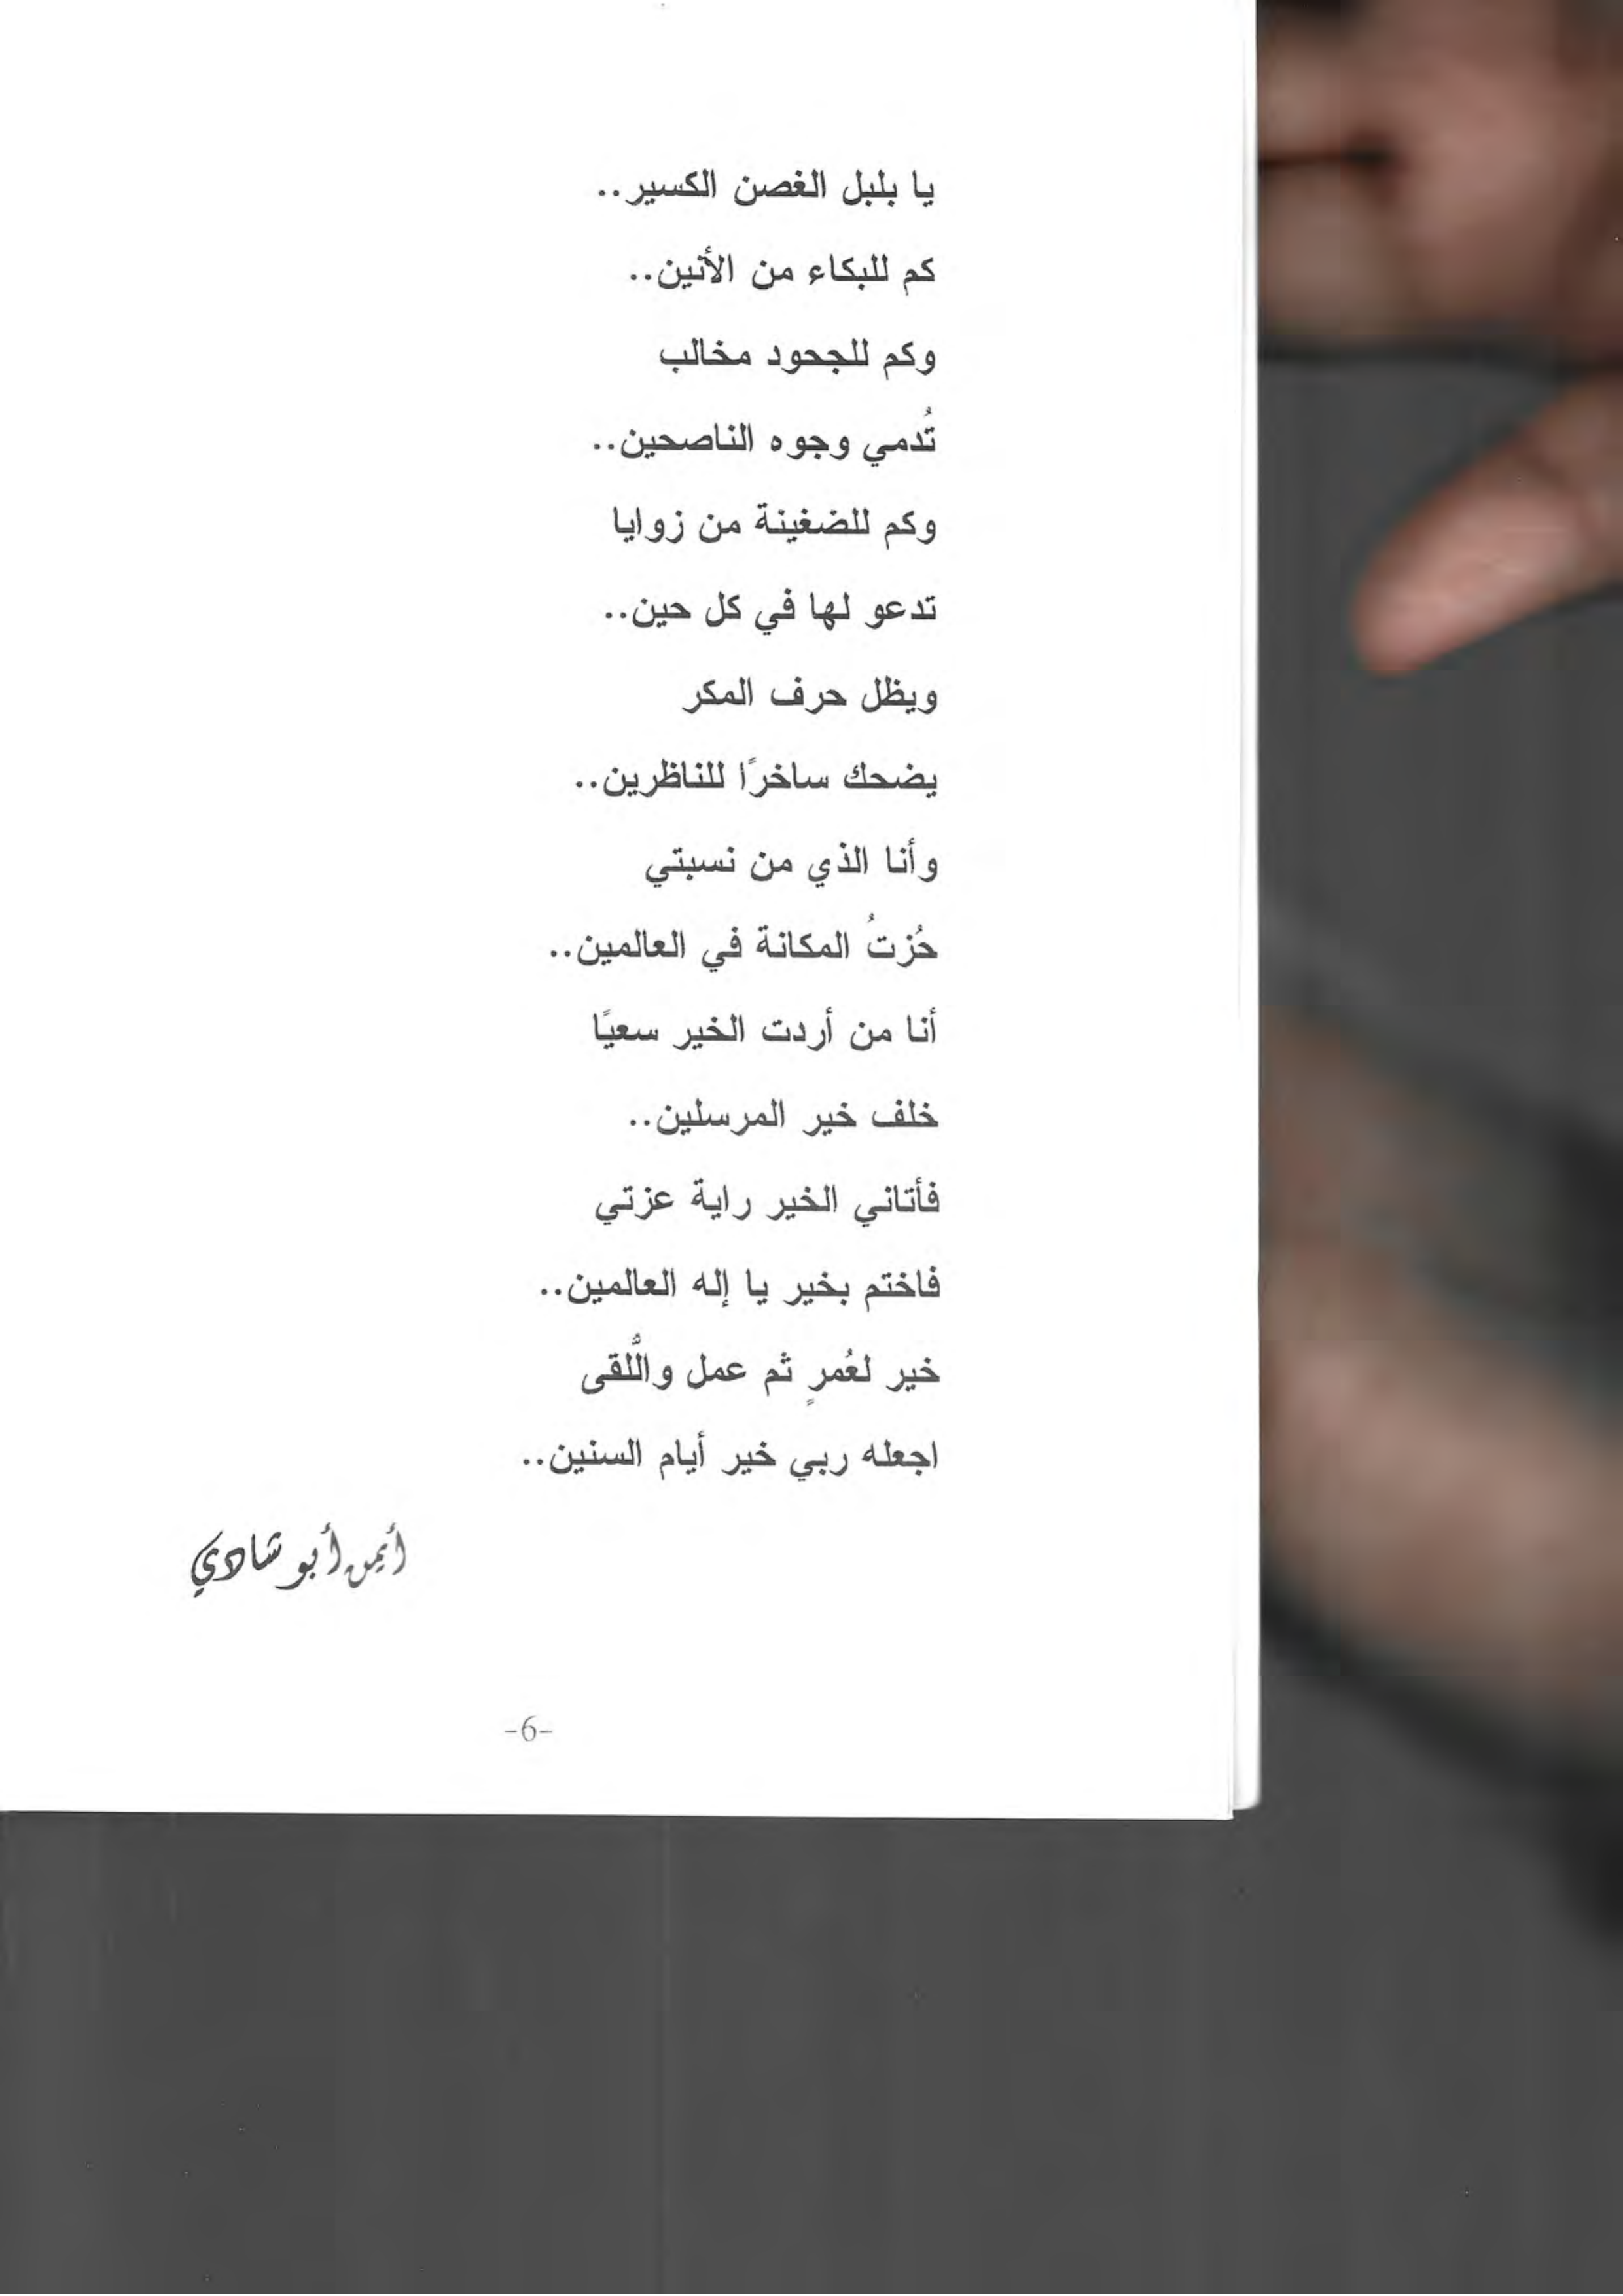 يا بلبل الغصن الكسير..
كم للبكاء من الأنين..
وكم للجحود مخالب
تُدمي وجوه الناصحين..
وكم للضغينة من زوايا
تدعو لها في كل حين..
ويظل حرف المكر
يضحك ساخرًا للناظرين..
وأنا الذي من نسبتي
حُزتُ المكانة في العالمين..
أنا من أردت الخير سعيًا
خلف خير المرسلين..
فأتاني الخير راية عزتي
فاختم بخير يا إله العالمين..
خير لعُمرٍ ثم عمل واللُّقى
اجعله ربي خير أيام السنين..
أيمن أبو شادي
-6-